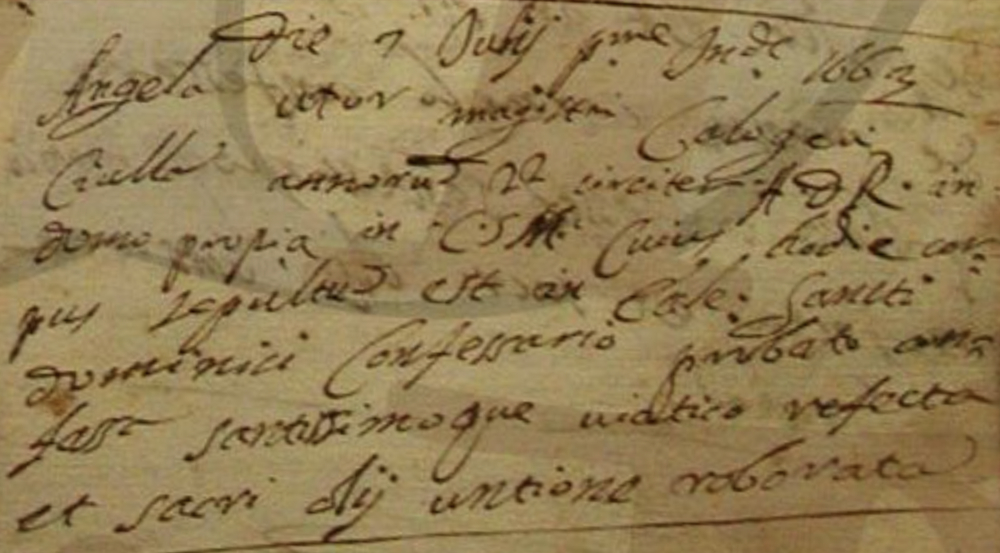 Die 7 Julij p.me Ind.e 1663
Angela uxor magistri Calogeri
Ciulla annorũ 22 circiter A D R. in
domo propia in C S M. Cuius hodie cor-
pus sepultũ est in Eccle: Santi
dominici Confessario probato con-
fessa santissimoque uiatico refecta
et sacri olij untione roborata